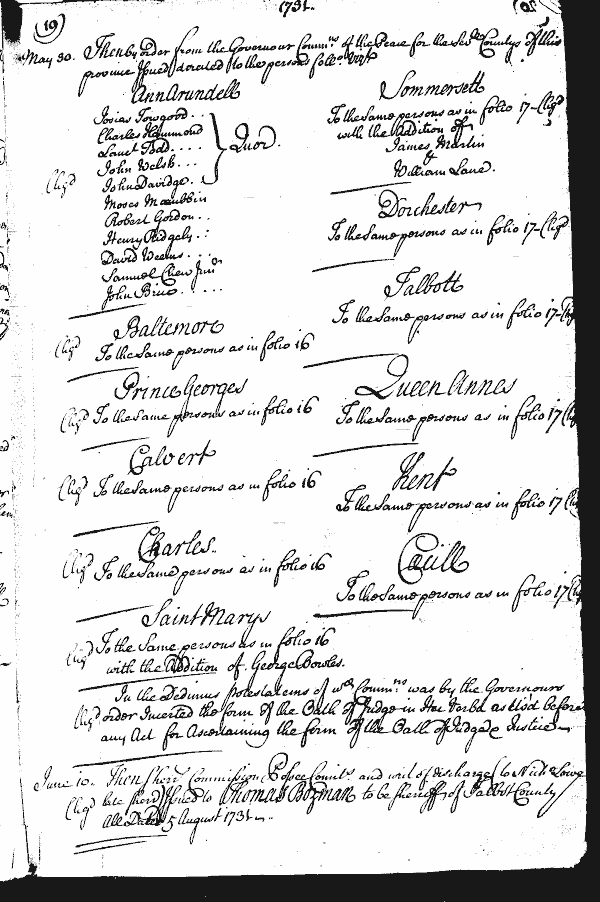 1731.
(19)
May 30. Then by order from the Governour Comm.ns of the Peace for the Sev.ll Countys of this
province Issued directed to the persons foll.
AnnArundell
Josias Towgood . .
Charles Hammond
John Welsh . . .
John Davidge . .
Quor.
Moses Maccubbin
Robert Gordon . .
Henry Ridgely . :
David Weems . . .
Samuel Chew Jun.r
John Brice . . . .
Baltemore
To the Same persons as in folio 16
Prince Georges
To the Same persons as in folio 16
Calvert
To the Same persons as in folio 16
Charles
To the Same persons as in folio 16
Saint Marys
To the Same persons as in folio 16
with the Addition of George Bowles.
Sommersett
To the Same persons as in folio 17
with the Addition of
James Martin
&
William Lane.
Dorchester
To the Same persons as in folio 17
Talbott
To the Same persons as in folio 17
Queen Annes
To the Same persons as in folio 17
Kent
To the Same persons as in folio 17
Cecill
To the Same persons as in folio 17
In the Dedimus potestatems of w.ch Comm.ns was by the Governours
order Inserted the form of the Oath of Judge in Hec Verba as they did before
any Act for Ascertaining the form of the Oath of Judge & Justice
June 10. Then Sher.s Commission Posse Comit.s and writ of discharge (to Nich Lowe
late Sherr) Issued to Thomas Bozman to be Sherriff of Talbot County
All Dated 5 August 1731